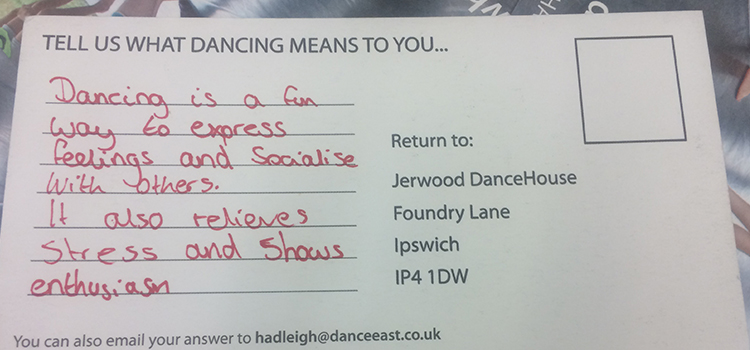 TELL US WHAT DANCING MEANS TO YOU...
Dancing is a fun
way to express
feelings and Socialise
With others.
It also relieves
Stress and Shows
enthusiasm
Return to:
Jerwood DanceHouse
Foundry Lane
Ipswich
IP4 1DW
You can also email your answer to hadleigh@danceeast.co.uk